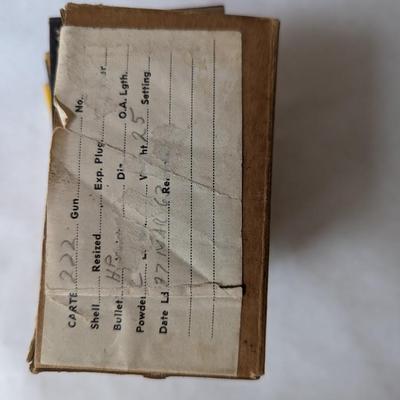 CARTE 222 Gun No.
Shell Resized Exp. Plug
Bullet HP Di O.A. Lgth.
Powder C ht. 25 Setting
Date L 27 MAR 63 Re